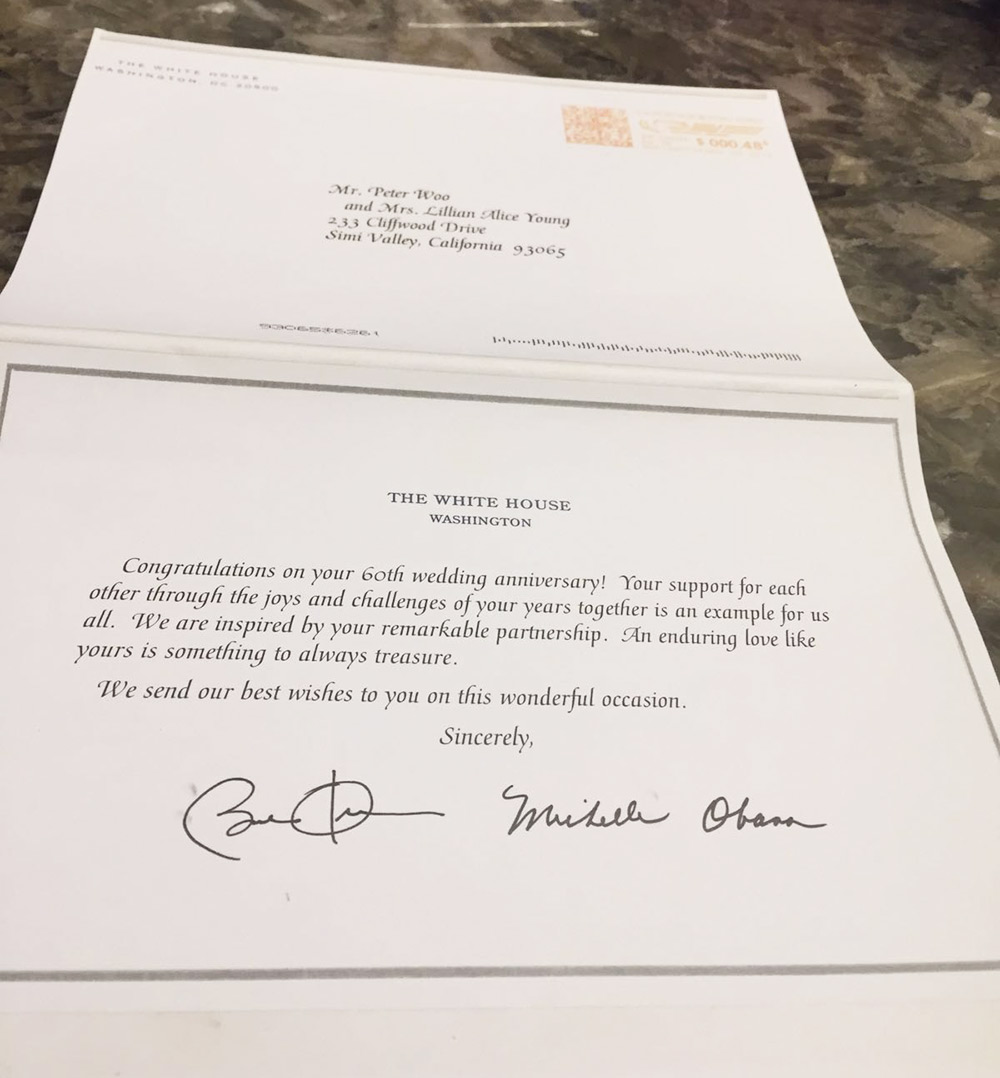 THE WHITE HOUSE
WASHINGTON, DC 20500
$ 000.48
Mr. Peter Woo
and Mrs. Lillian Alice Young
233 Cliffwood Drive
Simi Valley, California 93065
9306536261
THE WHITE HOUSE
WASHINGTON
Congratulations on your 60th wedding anniversary! Your support for each
other through the joys and challenges of your years together is an example for us
all. We are inspired by your remarkable partnership. An enduring love like
yours is something to always treasure.
We send our best wishes to you on this wonderful occasion.
Sincerely,
Michelle Obama